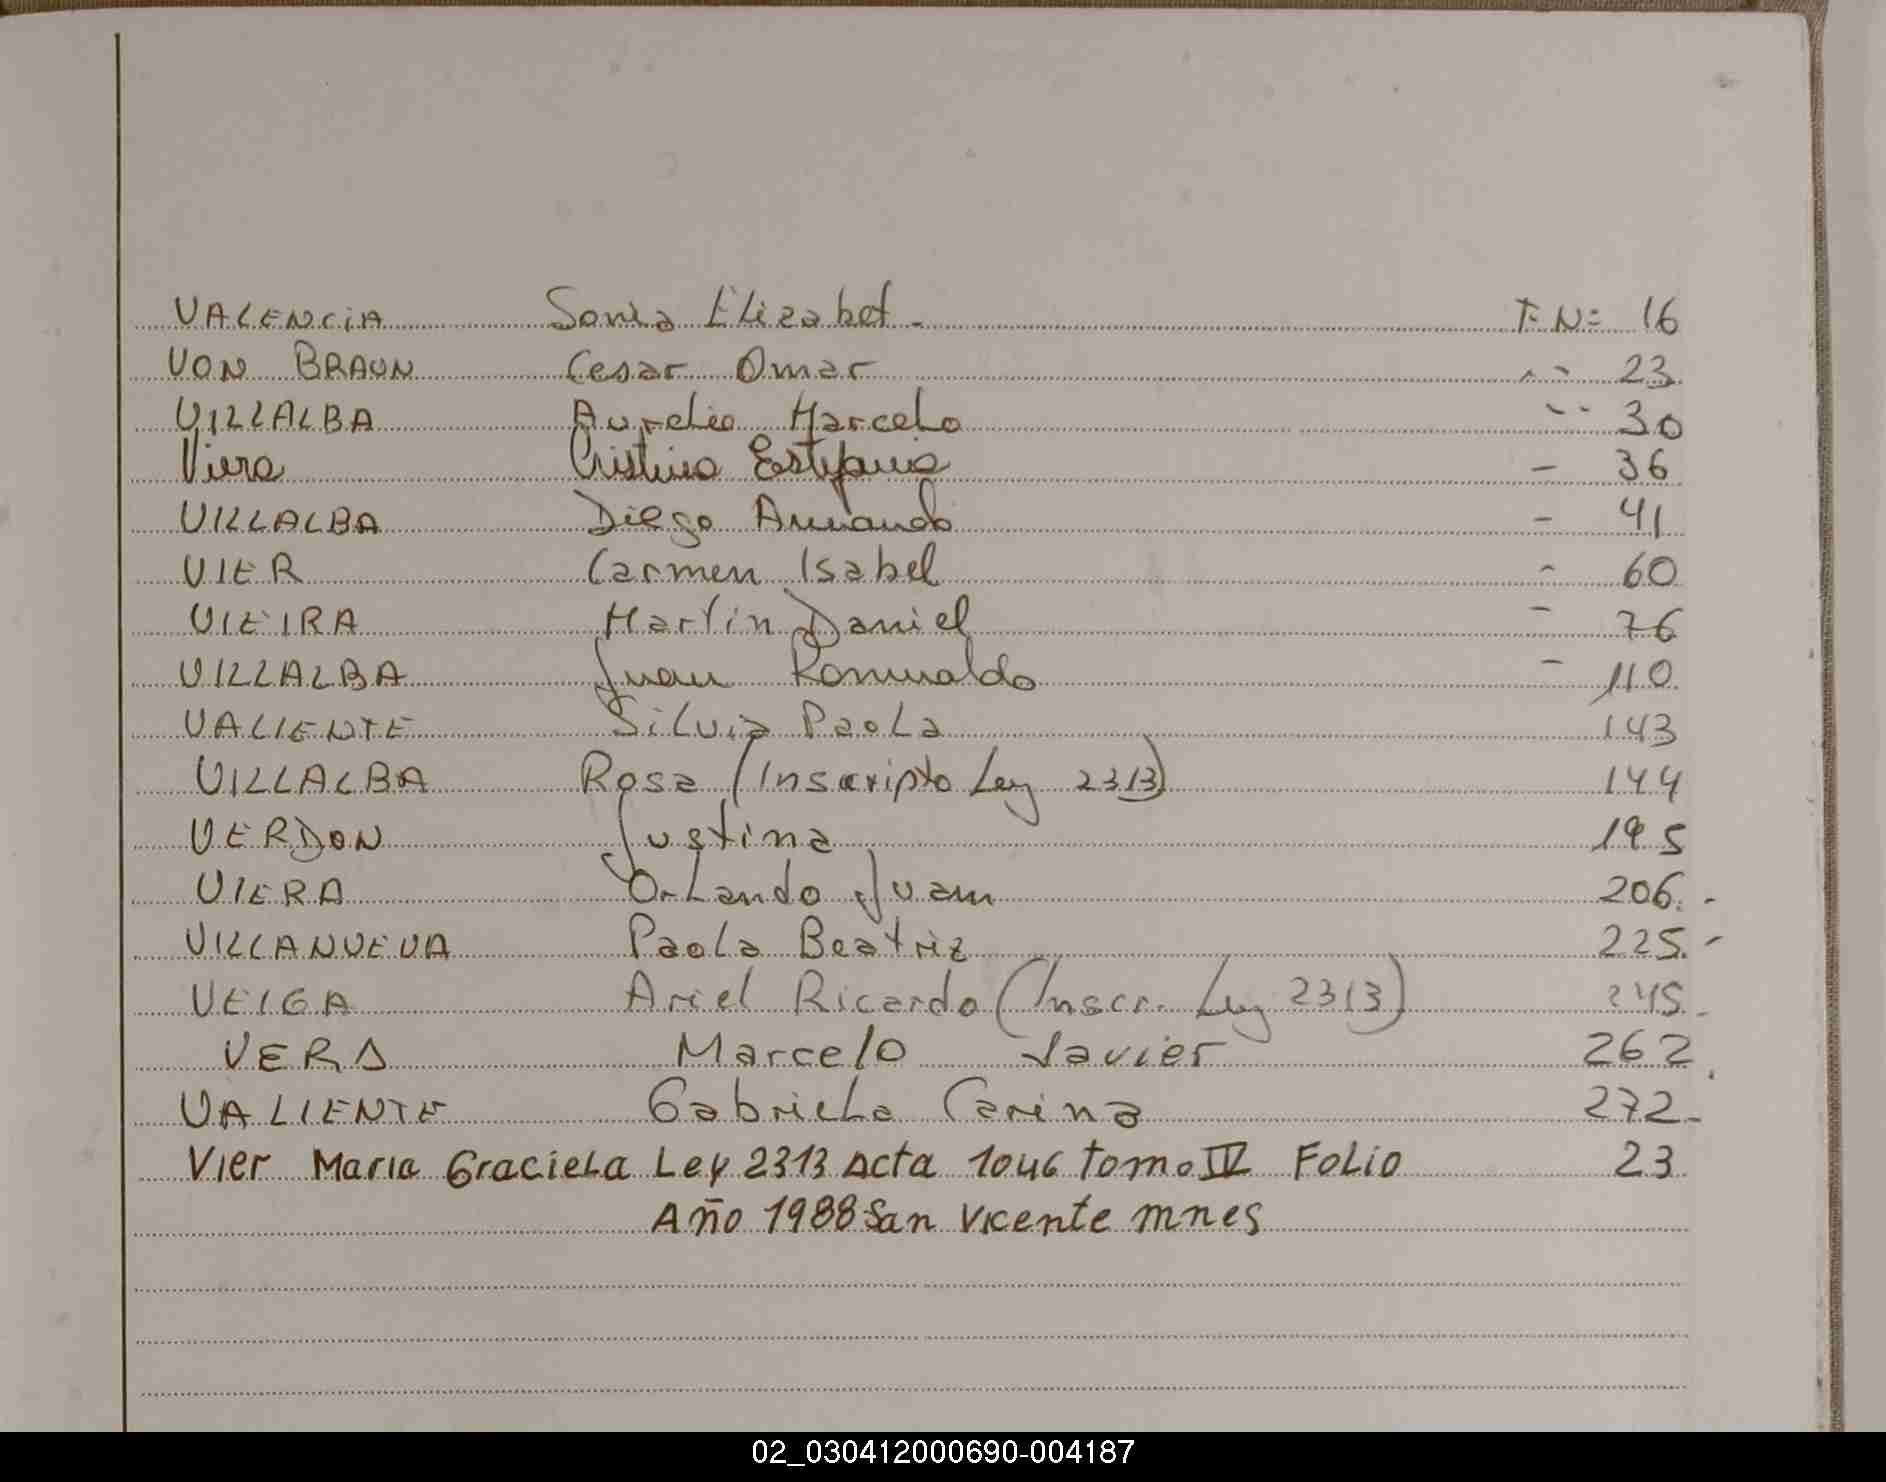 VALENCIA Sonia Elizabet. F. Nº 16
VON BRAUN Cesar Omar " 23
VILLALBA Aurelio Marcelo " 30
Viera Cristina Estefania - 36
VILLALBA Diego Armando - 41
VIER Carmen Isabel - 60
VIEIRA Martin Daniel - 76
VILLALBA Juan Romualdo - 110
VALIENTE Silvia Paola 143
VILLALBA Rosa (Inscripto Ley 2313) 144
VERDON Justina 195
VIERA Orlando Juan 206.-
VILLANUEVA Paola Beatriz 225.-
VEIGA Ariel Ricardo (Inscr. Ley 2313) 245.-
VERA Marcelo Javier 262.
VALIENTE Gabriela Carina 272-
Vier Maria Graciela Ley 2313 Acta 1046 tomo IV Folio 23
Año 1988 San Vicente mnes
02_030412000690-004187